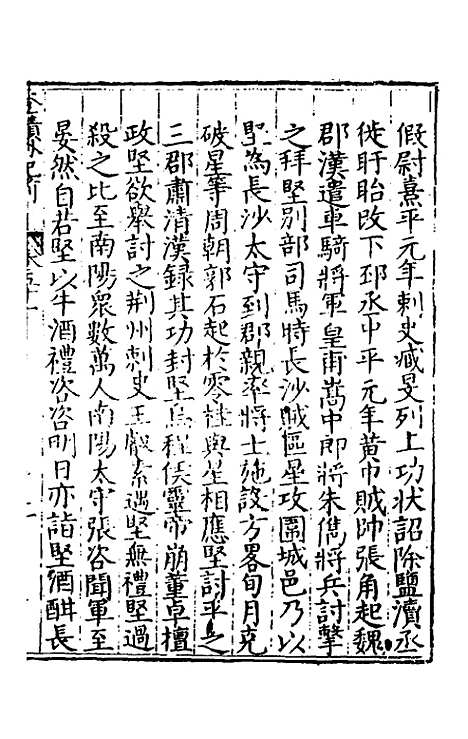 假尉熹平元年刺史臧旻列上功狀詔除鹽瀆丞
徙盱眙改下邳丞中平元年黄巾賊帥張角起魏
郡漢遣車騎將軍皇甫嵩中郎將朱儁將兵討擊
之拜堅別部司馬時長沙賊區星攻圍城邑乃以
堅為長沙太守到郡親率將士施設方畧旬月克
破星等周朝郭石起於零桂與星相應堅討平之
三郡肅清漢録其功封堅烏程侯靈帝崩董卓擅
政堅欲舉討之荆州刺史王叡素遇堅無禮堅過
殺之比至南陽衆數萬人南陽太守張咨聞軍至
晏然自若堅以牛酒禮咨咨明日亦詣堅酒酣長